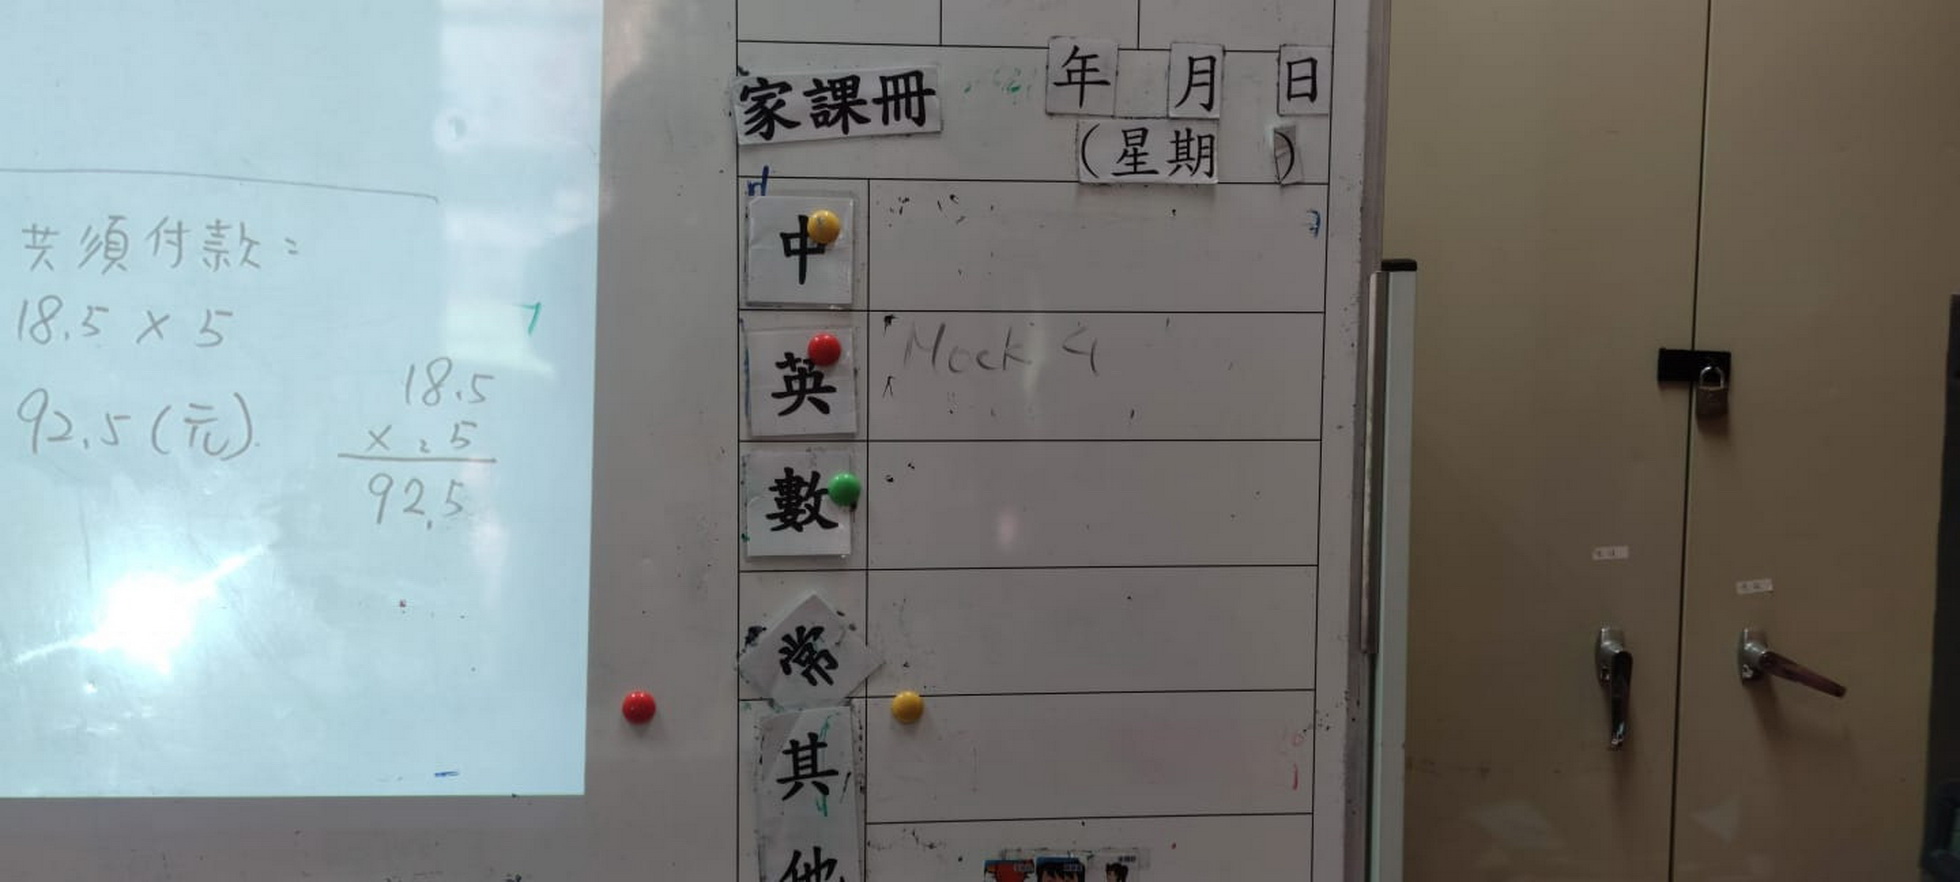 共須付款：
18.5 × 5
92.5 (元)
18.5
× 5
92.5
家課冊 年 月 日
(星期 )
中
英 Mock 4
數
常
其他